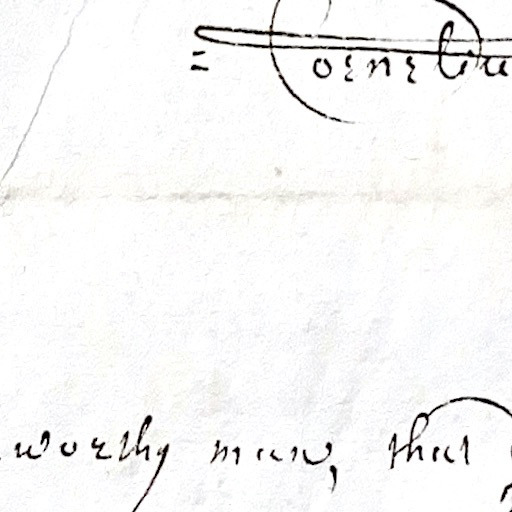 = Corneliu
worthy man, that